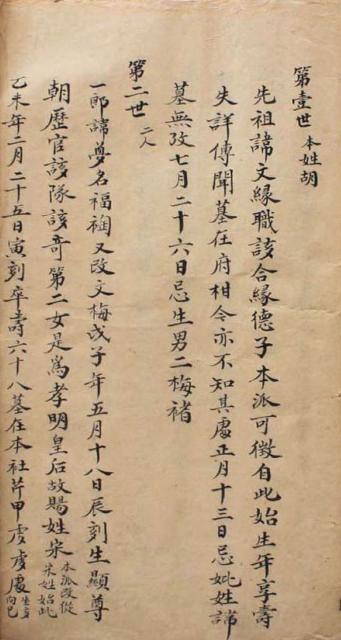 第壹世 本姓胡
先祖諱文緣職該合緣德子本派可徵自此始生年享壽
失詳傳聞墓在府相令亦不知其處正月十三日忌妣姓諱
墓無攷七月二十六日忌生男二梅褚
第二世 二人
一郎諱夢名福裪又改文梅戊子年五月十八日辰刻生顯尊
朝歷官該隊該奇第二女是爲孝明皇后故賜姓宋本派改從宋姓始此
乙未年二月二十五日寅刻卒壽六十八墓在本社芹甲虔虔處坐亥向巳